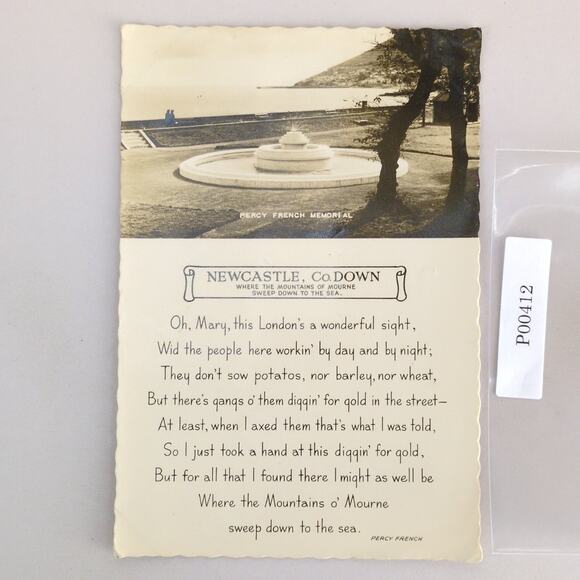 PERCY FRENCH MEMORIAL
NEWCASTLE, Co. DOWN
WHERE THE MOUNTAINS OF MOURNE
SWEEP DOWN TO THE SEA.
Oh, Mary, this London's a wonderful sight,
Wid the people here workin' by day and by night;
They don't sow potatos, nor barley, nor wheat,
But there's gangs o' them diggin' for gold in the street—
At least, when I axed them that's what I was told,
So I just took a hand at this diggin' for gold,
But for all that I found there I might as well be
Where the Mountains o' Mourne
sweep down to the sea.
PERCY FRENCH
P00412